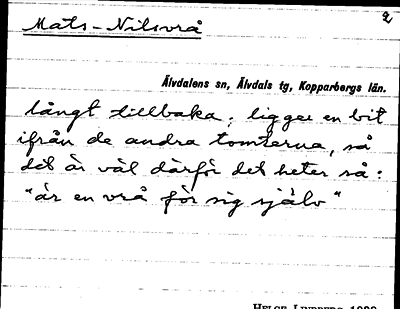 2
Mats-Nilsvrå
Älvdalens sn, Älvdals tg, Kopparbergs län.
långt tillbaka; ligger en bit
ifrån de andra tomterna, så
det är väl därför det heter så:
"är en vrå för sig själv"